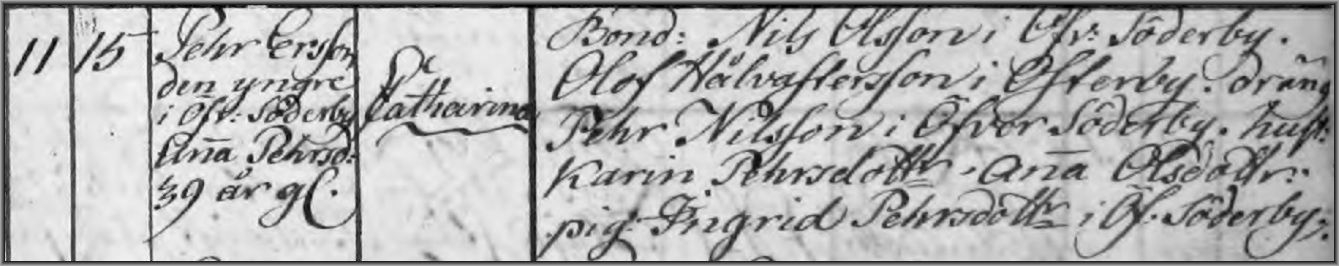 11
15
Pehr Ersson
den yngre
i Öfr: Söderby
Aña Pehrsd:
39 år gl.
Catharina
Bond: Nils Olsson i Öfr: Söderby.
Olof Hålvastersson i Österby. dräng
Pehr Nilsson i Öfver Söderby. hust:
Karin Pehrsdottr. Aña Olsdottr:
pig. Ingrid Pehrsdottr i Öf. Söderby.